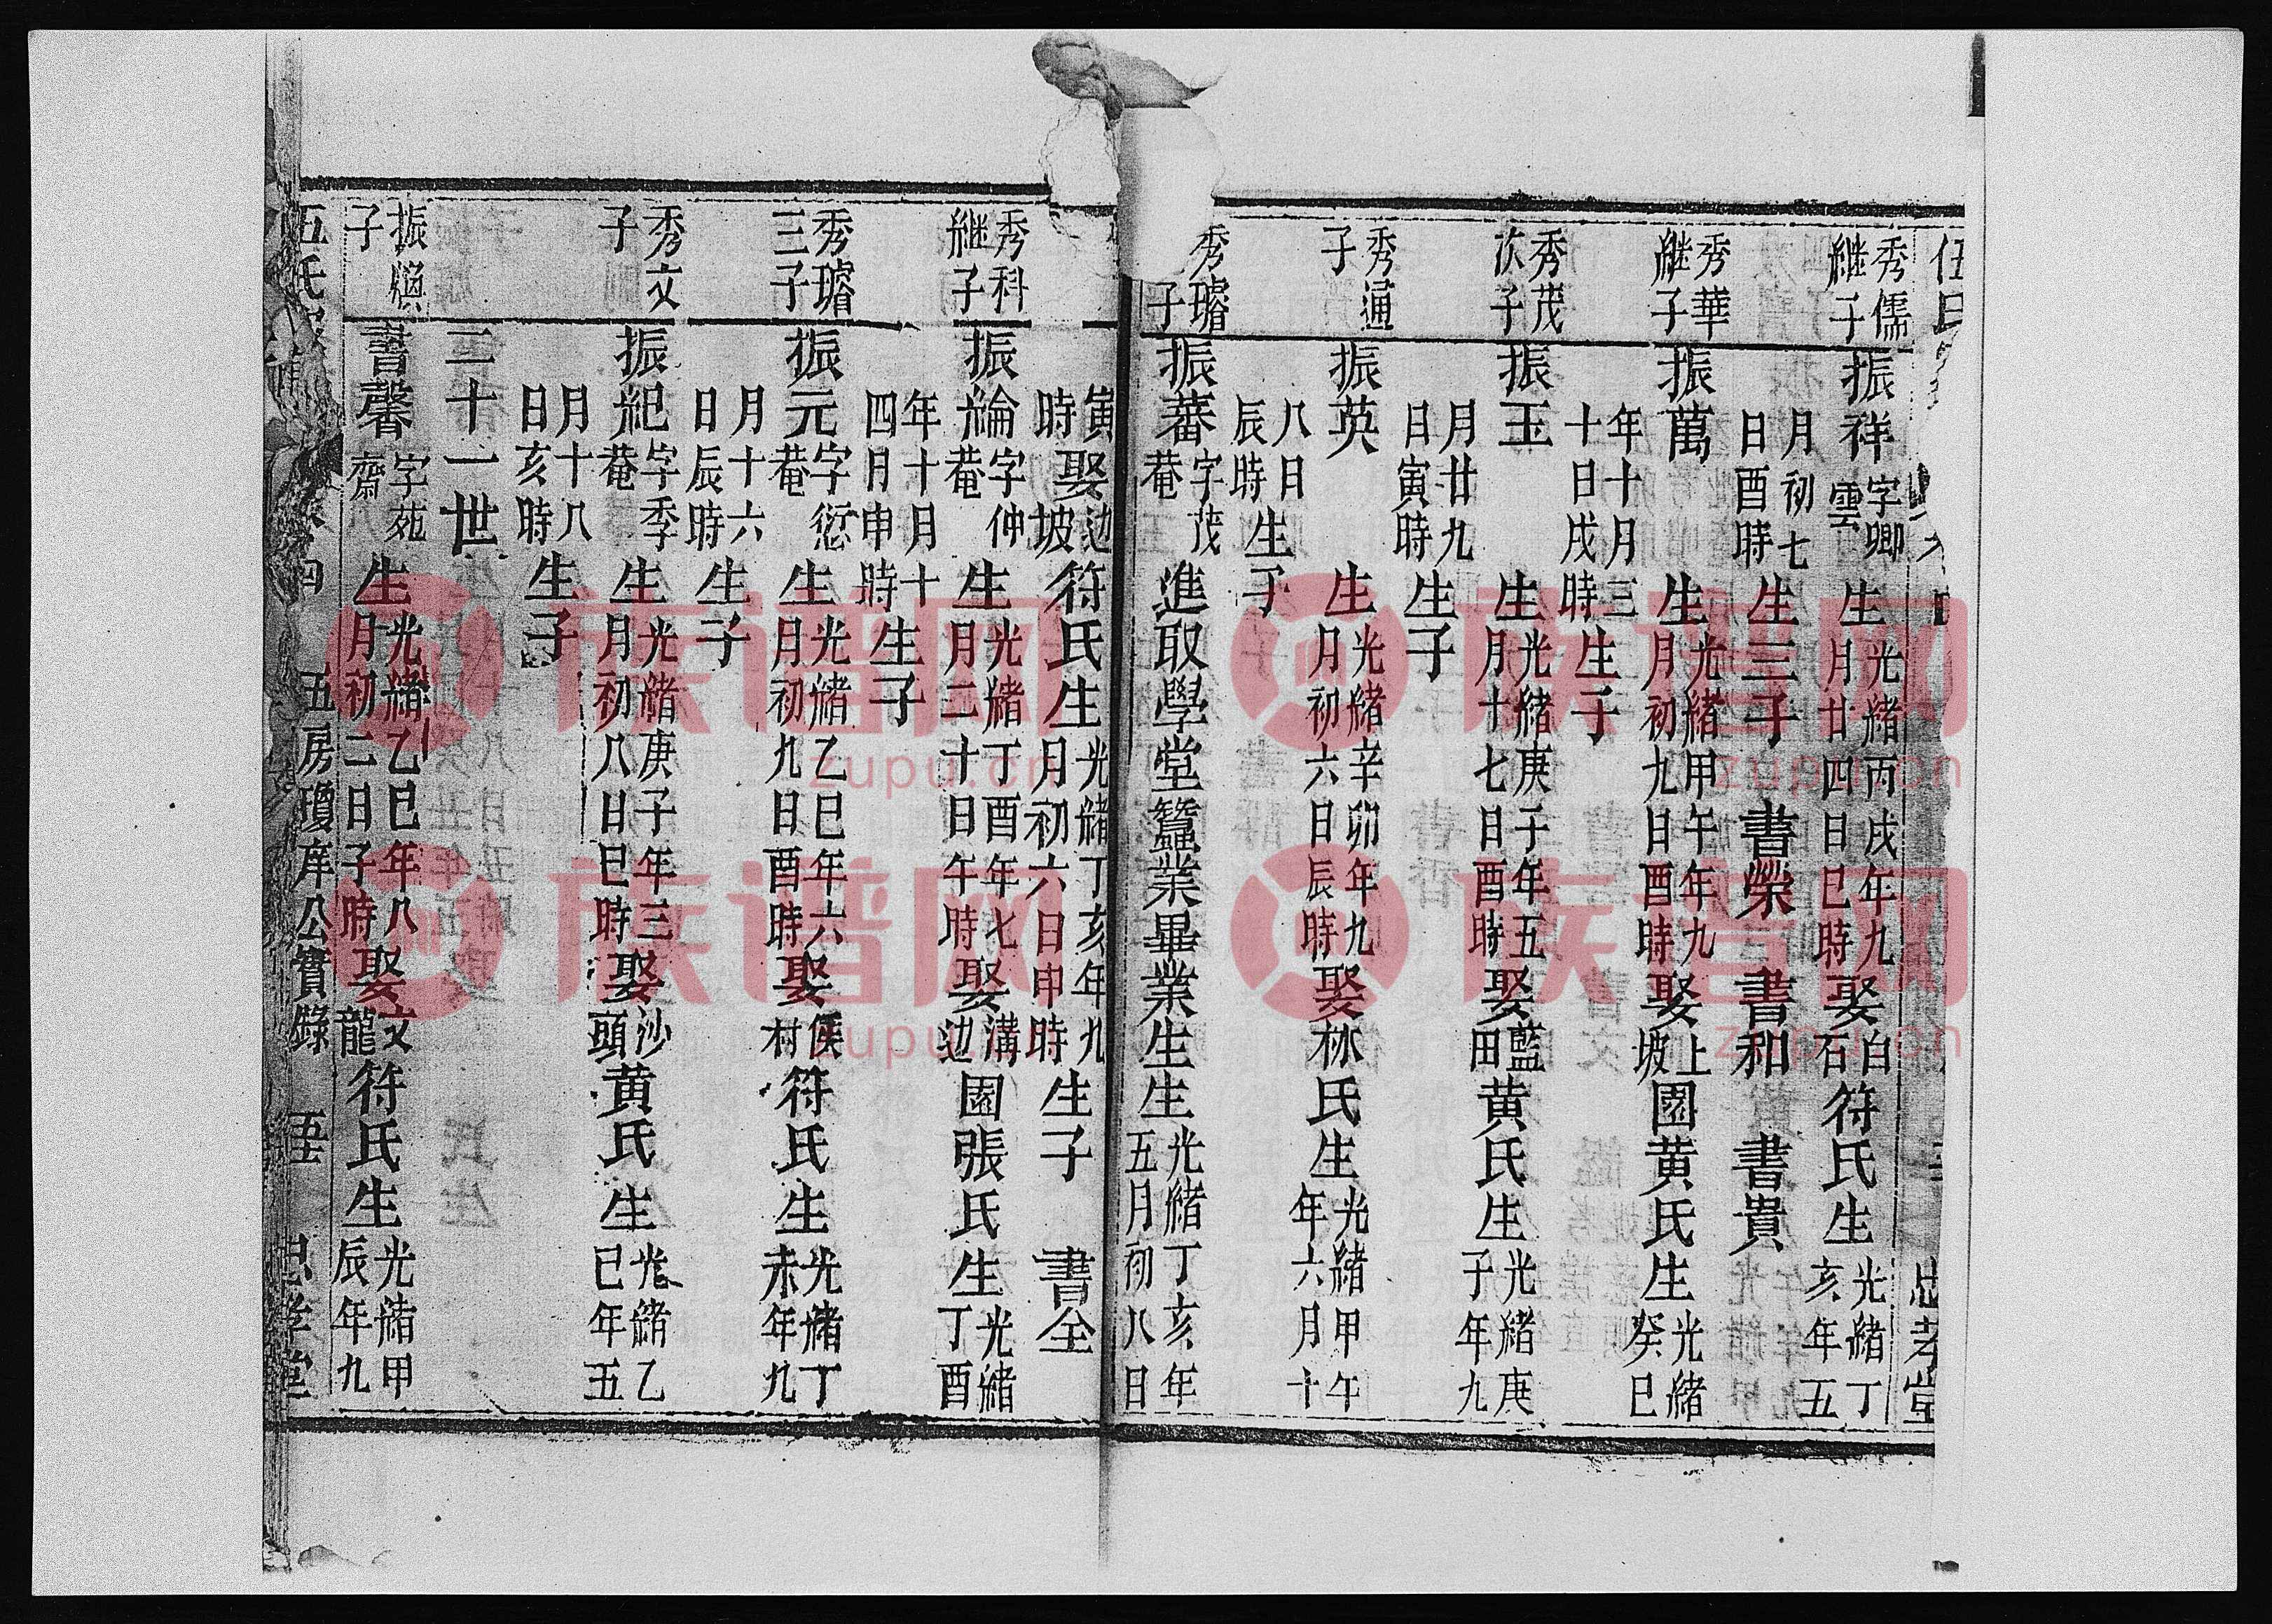 伍氏
忠孝堂
秀儒
繼子
振祥 字卿
雲 生 光緒丙戌年九
月廿四日巳時 娶 白
石 符氏生 光緒丁
亥年五
月初七
日酉時 生三子 書榮 書和 書貴
秀華
繼子
振萬 生 光緒甲午年九
月初九日酉時 娶 上
坡 園黃氏生 光緒
癸巳
年十月三
十日戌時 生子
秀茂
次子
振玉 生 光緒庚子年五
月十七日酉時 娶 藍
田 黃氏生 光緒庚
子年九
月廿九
日寅時 生子
秀通
子
振英 生 光緒辛卯年九
月初六日辰時 娶林氏生 光緒甲午
年六月十
八日
辰時 生子
秀璿
子
振蕃 字茂
菴 進取學堂蠶業畢業生生 光緒丁亥年
五月初八日
寅
時 娶 边
坡 符氏生 光緒丁亥年九
月初六日申時 生子 書全
秀科
繼子
振綸 字仲
菴 生 光緒丁酉年七
月二十日午時 娶 溝
边 園張氏生 光緒
丁酉
年十月十
四月申時 生子
秀璿
三子
振元 字愆
菴 生 光緒乙巳年六
月初九日酉時 娶 侯
村 符氏生 光緒丁
未年九
月十六
日辰時 生子
秀文
子
振紀 字季
菴 生 光緒庚子年三
月初八日巳時 娶 沙
頭 黃氏生 光緒乙
巳年五
月十八
日亥時 生子
二十一世
振
子
書馨 字苑
齋 生 光緒乙巳年八
月初二日子時 娶 文
龍 符氏生 光緒甲
辰年九
五氏 五房瓊庠公實錄 五 孝堂
族谱网
zupu.cn
族谱网
zupu.cn
族谱网
zupu.cn
族谱网
zupu.cn